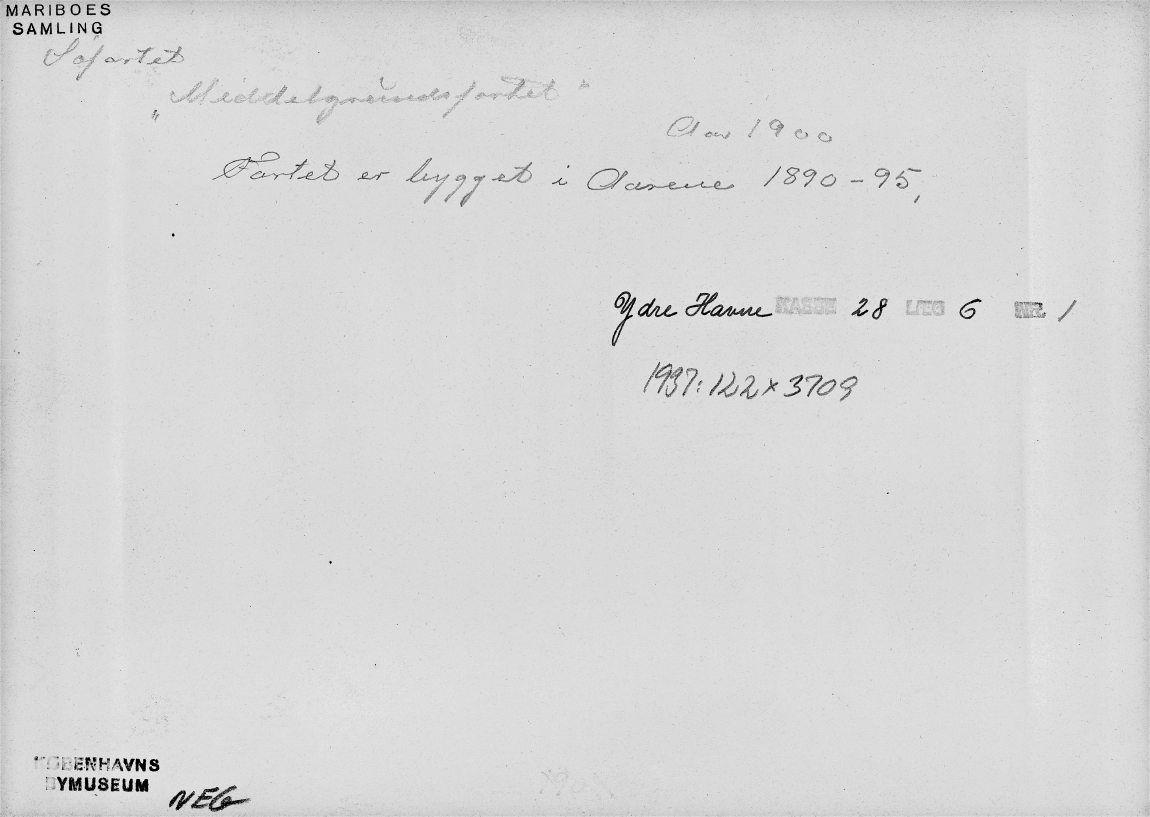 MARIBOES
SAMLING
Søfortet
„Middelgrundsfortet"
Aar 1900
Fortet er bygget i Aarene 1890-95,
Ydre Havne KASSE 28 LÆG 6 NR. 1
1937:122 x 3709
KØBENHAVNS
BYMUSEUM
NEG